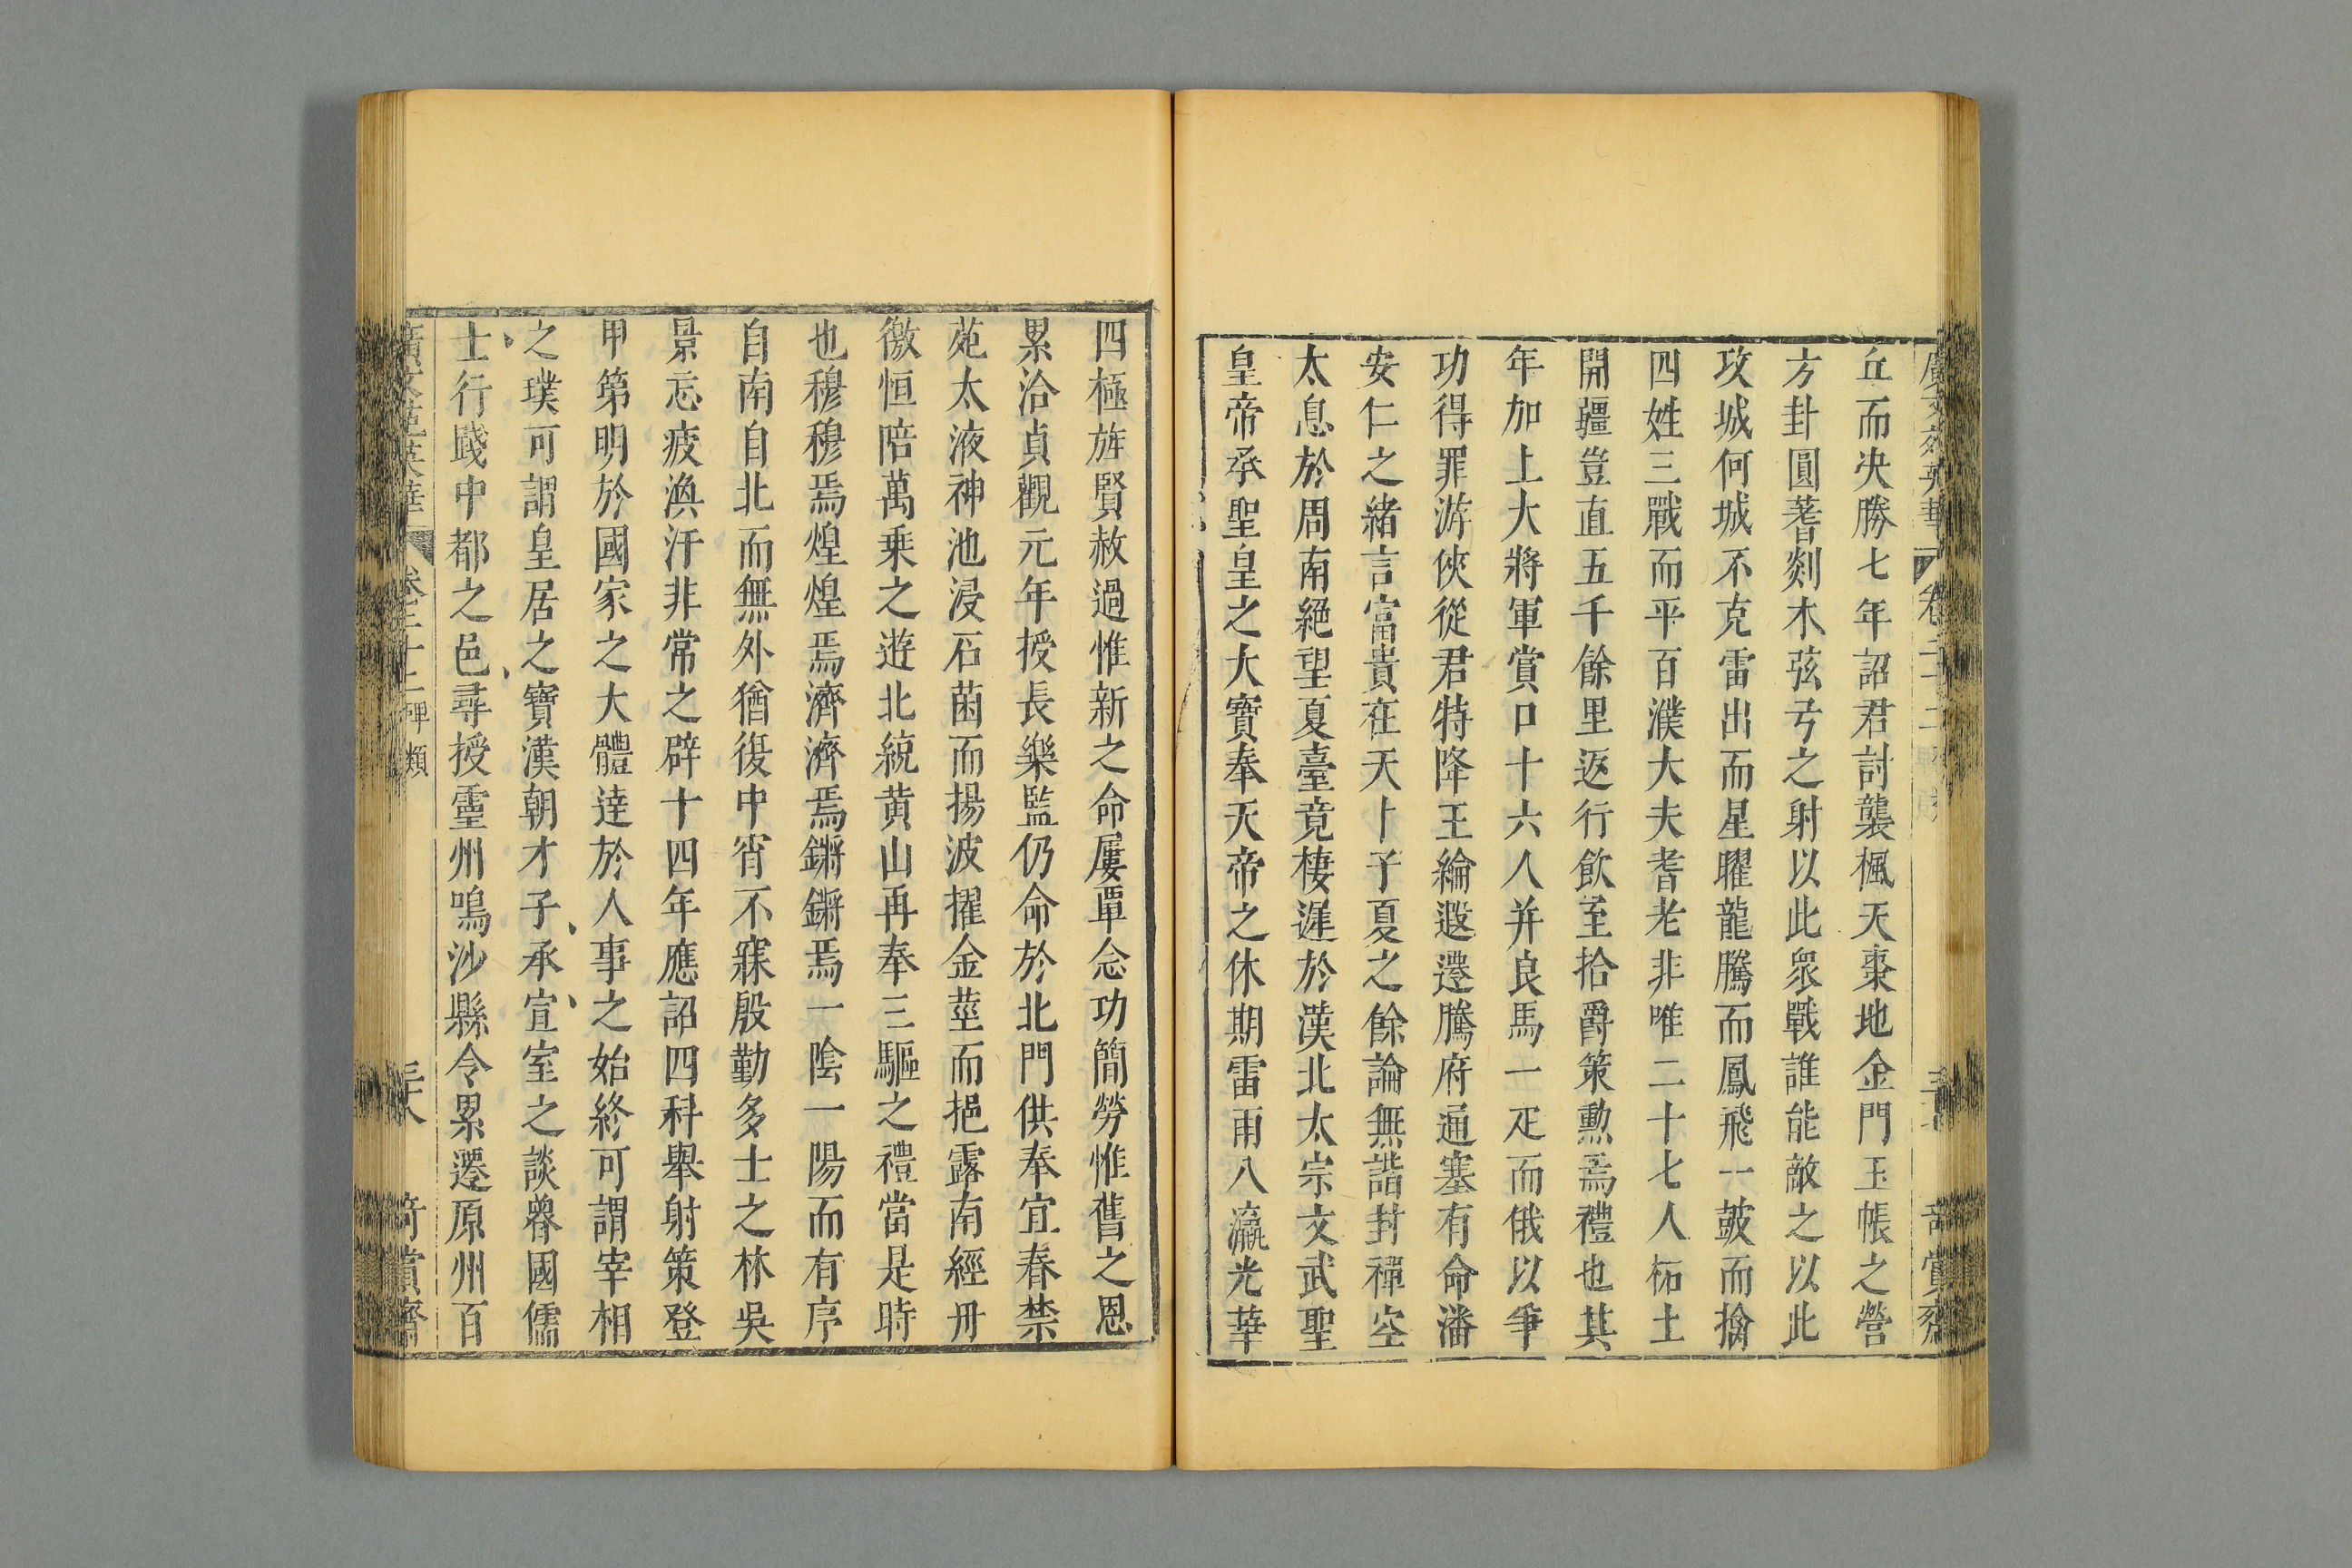 丘而决勝七年詔君討襲楓天棗地金門玉帳之營
方卦圓蓍剡木弦弓之射以此衆戰誰能敵之以此
攻城何城不克雷出而星曜龍騰而鳳飛一鼓而擒
四姓三戰而平百濮大夫耆老非唯二十七人柘土
開疆豈直五千餘里返行飲至拾爵策勲焉禮也其
年加上大將軍賞口十六人并良馬一疋而俄以爭
功得罪游俠從君特降王綸遐遷騰府通塞有命潘
安仁之緒言富貴在天卜子夏之餘論無諧封禪空
太息於周南絕望夏臺竟棲遲於漢北太宗文武聖
皇帝承聖皇之大寶奉天帝之休期雷雨八瀛光華
四極旌賢赦過惟新之命屢覃念功簡勞惟舊之恩
累洽貞觀元年授長樂監仍命於北門供奉宜春禁
苑太液神池浸石菌而揚波擢金莖而挹露南經丹
徼恒陪萬乘之遊北繞黄山再奉三驅之禮當是時
也穆穆焉煌煌焉濟濟焉鏘鏘焉一陰一陽而有序
自南自北而無外猶復中宵不寐殷勤多士之林吳
景忘疲渙汗非常之辟十四年應詔四科舉射策登
甲第明於國家之大體逹於人事之始終可謂宰相
之璞可謂皇居之寶漢朝才子承宣室之談魯國儒
士行踐中都之邑尋授靈州鳴沙縣令累遷原州百
廣文苑英華 卷三十二 碑類 三十八 奇賞齋